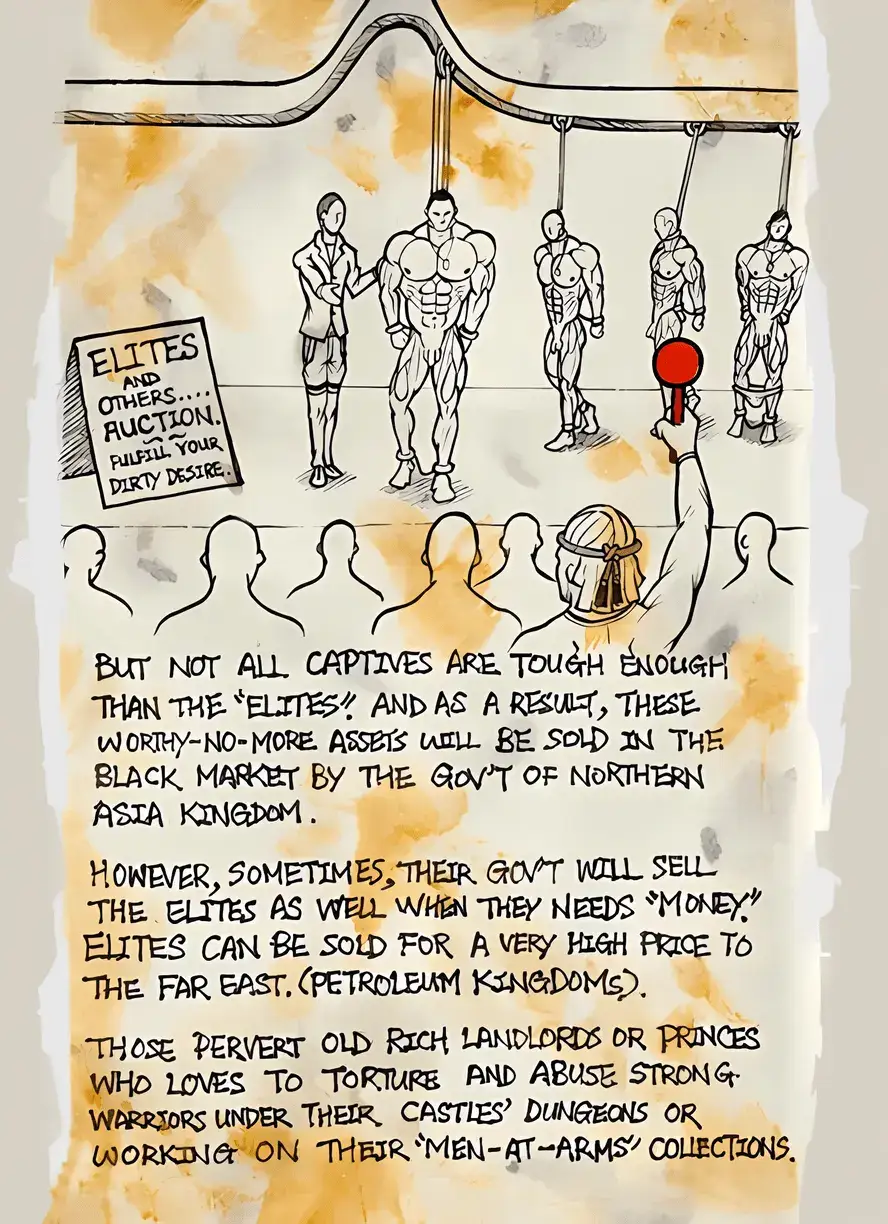 ELITES
AND
OTHERS....
AUCTION.
~~
FULFILL YOUR
DIRTY DESIRE.
BUT NOT ALL CAPTIVES ARE TOUGH ENOUGH
THAN THE "ELITES". AND AS A RESULT, THESE
WORTHY-NO-MORE ASSETS WILL BE SOLD IN THE
BLACK MARKET BY THE GOV'T OF NORTHERN
ASIA KINGDOM.
HOWEVER, SOMETIMES, THEIR GOV'T WILL SELL
THE ELITES AS WELL WHEN THEY NEEDS "MONEY."
ELITES CAN BE SOLD FOR A VERY HIGH PRICE TO
THE FAR EAST. (PETROLEUM KINGDOMS).
THOSE PERVERT OLD RICH LANDLORDS OR PRINCES
WHO LOVES TO TORTURE AND ABUSE STRONG
WARRIORS UNDER THEIR CASTLES' DUNGEONS OR
WORKING ON THEIR "MEN-AT-ARMS" COLLECTIONS.